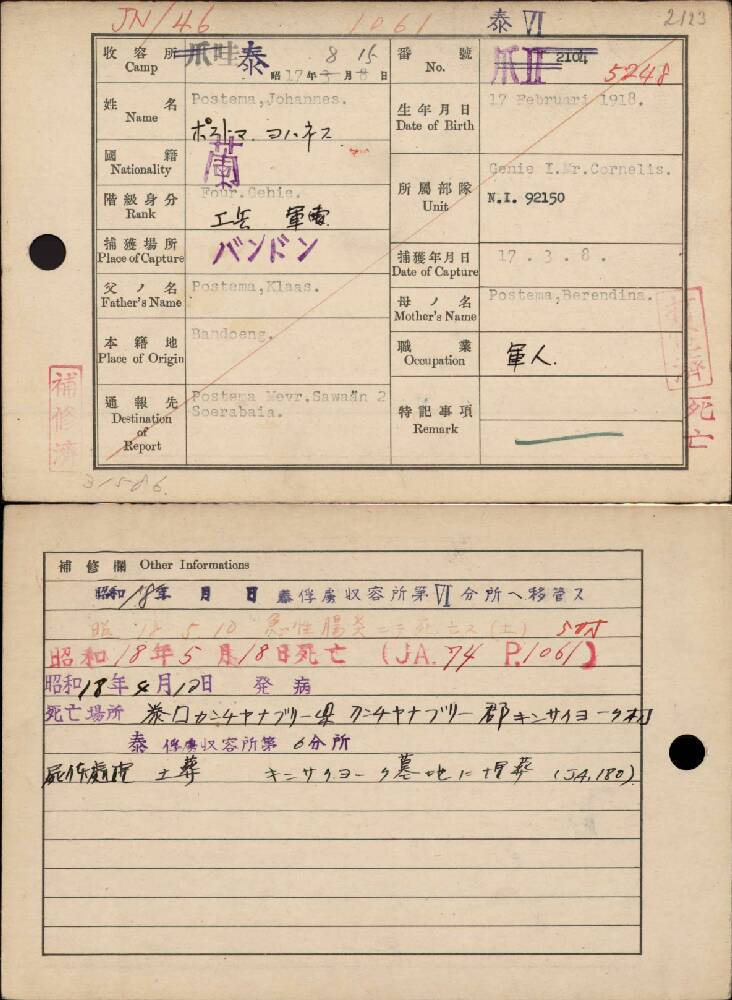 JN/46 1061 泰 VI 2123
收容所 Camp 爪哇 泰 昭17年 8月 15日
番號 No. 爪 II 2104 5248
姓名 Name Postema,Johannes.
ポストマ ヨハネス
生年月日 Date of Birth 17 Februari 1918.
國籍 Nationality 蘭
階級身分 Rank Four.Gehie.
工兵
所屬部隊 Unit Genie I.Mr.Cornelis.
N.I. 92150
捕獲場所 Place of Capture バンドン
捕獲年月日 Date of Capture 17.3.8.
父ノ名 Father's Name Postema,Klaas.
母ノ名 Mother's Name Postema,Berendina.
本籍地 Place of Origin Bandoeng.
職業 Occupation 軍人.
通報先 Destination of Report Postema Mevr.Sawaän 2
Soerabaia.
特記事項 Remark
補修濟
死亡
補修欄 Other Informations
昭和18年 月 日 泰俘虜収容所第VI分所ヘ移管ス
昭 18.5.10 急性腸炎ニテ死亡ス(土)
昭和18年5月18日死亡 (JA.74 P.1061)
昭和18年4月12日 発病
死亡場所 泰口カンチャナブリー県カンチャナブリー郡キンサイヨーク村
泰俘虜収容所第6分所
屍体處理 土葬 キンサイヨーク墓地に埋葬 (JA.180)